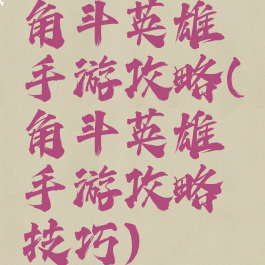 角斗英雄
手游攻略(
角斗英雄
手游攻略
技巧)